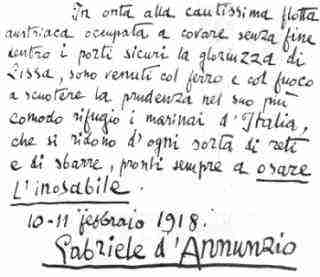 In onta alla cautissima flotta
austriaca occupata a covare senza fine
dentro i porti sicuri la gloriuzza di
Lissa, sono venuti col ferro e col fuoco
a scuotere la prudenza nel suo più
comodo rifugio i marinai d'Italia,
che si ridono d'ogni sorta di reti
e di sbarre, pronti sempre a osare
l'inosabile.
10-11 febbraio 1918.
Gabriele d'Annunzio